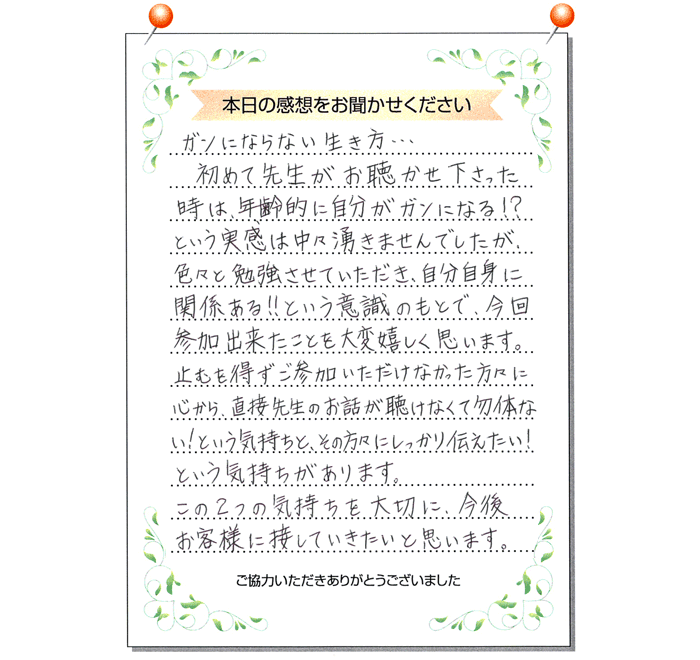 本日の感想をお聞かせください
ガンにならない生き方…
初めて先生がお聴かせ下さった
時は、年齢的に自分がガンになる!?
という実感は中々湧きませんでしたが、
色々と勉強させていただき、自分自身に
関係ある!!という意識のもとで、今回
参加出来たことを大変嬉しく思います。
止むを得ずご参加いただけなかった方々に
心から、直接先生のお話が聴けなくて勿体な
い!という気持ちと、その方々にしっかり伝えたい!
という気持ちがあります。
この2つの気持ちを大切に、今後
お客様に接していきたいと思います。
ご協力いただきありがとうございました